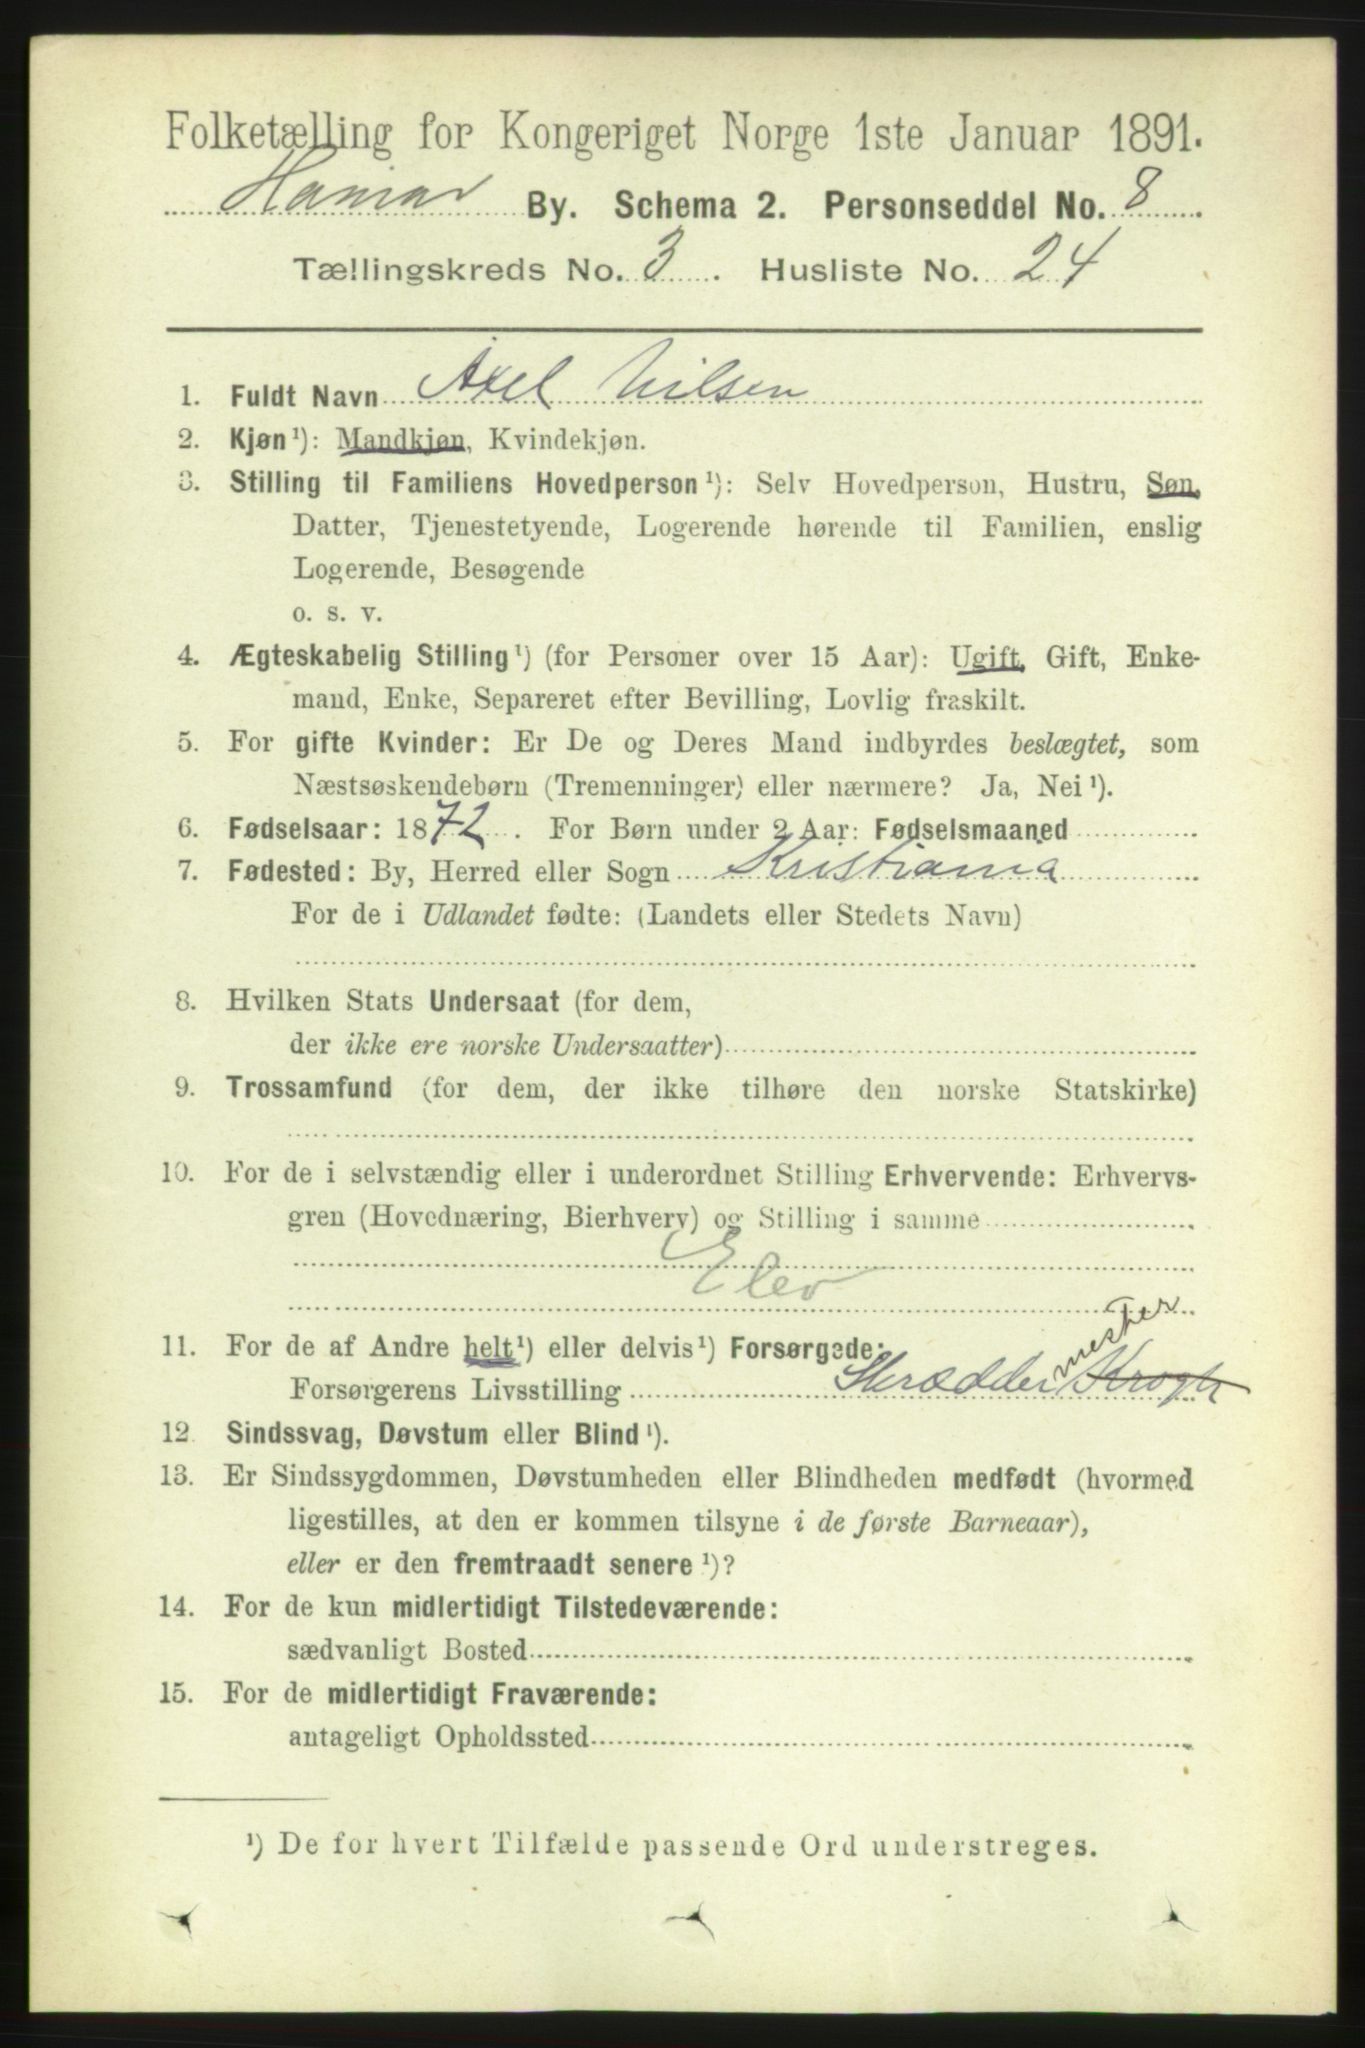 Folketælling for Kongeriget Norge 1ste Januar 1891.
Hamar By. Schema 2. Personseddel No. 8.
Tællingskreds No. 3. Husliste No. 24
1. Fuldt Navn Axel Nilsen
2. Kjøn¹): Mandkjøn, Kvindekjøn.
3. Stilling til Familiens Hovedperson¹): Selv Hovedperson, Hustru, Søn,
Datter, Tjenestetyende, Logerende hørende til Familien, enslig
Logerende, Besøgende
o. s. v.
4. Ægteskabelig Stilling¹) (for Personer over 15 Aar): Ugift, Gift, Enke-
mand, Enke, Separeret efter Bevilling, Lovlig fraskilt.
5. For gifte Kvinder: Er De og Deres Mand indbyrdes beslægtet, som
Næstsøskendebørn (Tremenninger) eller nærmere? Ja, Nei¹).
6. Fødselsaar: 1872. For Børn under 2 Aar: Fødselsmaaned
7. Fødested: By, Herred eller Sogn Kristiania
For de i Udlandet fødte: (Landets eller Stedets Navn)
8. Hvilken Stats Undersaat (for dem,
der ikke ere norske Undersaatter)
9. Trossamfund (for dem, der ikke tilhøre den norske Statskirke)
10. For de i selvstændig eller i underordnet Stilling Erhvervende: Erhvervs-
gren (Hovednæring, Bierhverv) og Stilling i samme
Elev
11. For de af Andre helt¹) eller delvis¹) Forsørgede:
Forsørgerens Livsstilling Skræddermester Krogh
12. Sindssvag, Døvstum eller Blind¹).
13. Er Sindssygdommen, Døvstumheden eller Blindheden medfødt (hvormed
ligestilles, at den er kommen tilsyne i de første Barneaar),
eller er den fremtraadt senere¹)?
14. For de kun midlertidigt Tilstedeværende:
sædvanligt Bosted
15. For de midlertidigt Fraværende:
antageligt Opholdssted
¹) De for hvert Tilfælde passende Ord understreges.